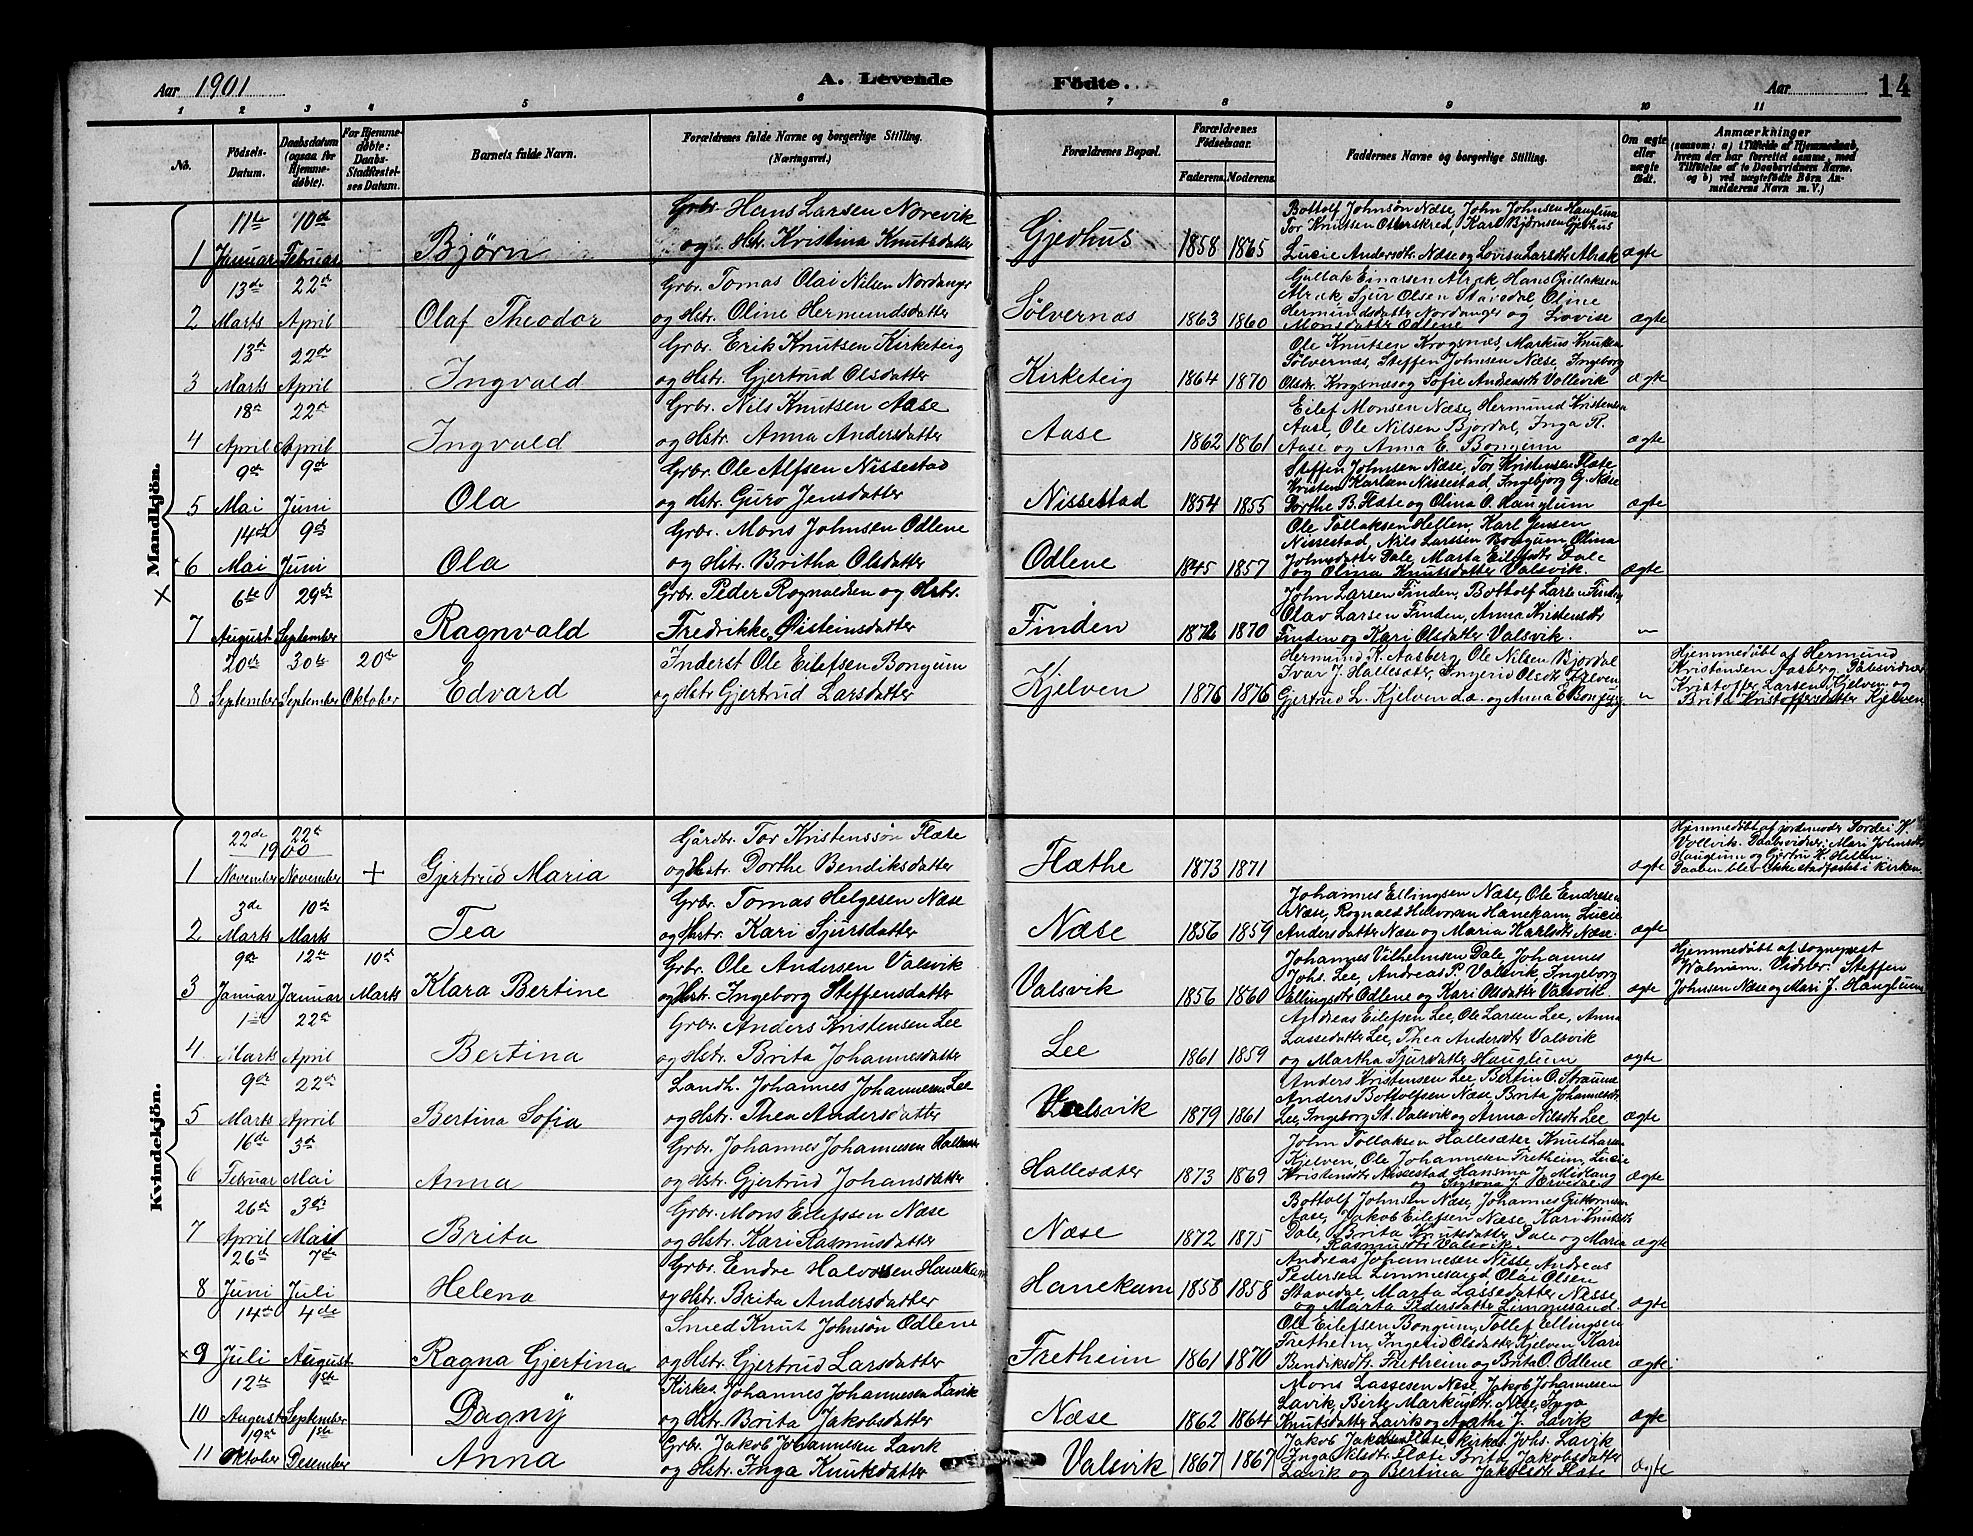 Aar 1901
A. Levende Födte.
Aar 14
1 2 3 4 5 6 7 8 9 10 11
No.
Födsels-Datum.
Daabsdatum (ogsaa for Hjemmedöbte).
For Hjemmedöbte: Daabs-Stadfæstelses Datum.
Barnets fulde Navn.
Forældrenes fulde Navne og borgerlige Stilling. (Næringsvei.)
Forældrenes Bopæl.
Forældrenes Födselsaar.
Faderens. Moderens.
Faddernes Navne og borgerlige Stilling.
Om ægte eller uægte födt.
Anmærkninger
(saasom: a) i Tilfælde af Hjemmedaab, hvem der har forrettet samme, med Tilföielse af to Daabsvidners Navne, og b) ved uægtefödte Börn Anmelderens Navn m. V.)
Mandkjön.
1 11te Januar 10de Februar Björn
Grbr Hans Larsen Norevik
og Hstr. Kristina Knutsdatter
Gjedhus 1858 1865
Bottolf Johnsøn Næse, John Johnsen Hauglum
Tor Knutsen Osterskred, Karl Bjørnsen Gjedhus
Lucie Andersdtr Næse og Lovisa Larsdtr Alrek ægte
2 13de Marts 22de April Olaf Theodor
Grbr. Tomas Olai Nilsen Nordanger
og Hstr. Oline Hermundsdatter
Sølvernæs 1863 1860
Gullak Einarsen Alræk, Hans Gullaksen
Alræk, Sjur Olsen Stavedal, Oline
Hermundsdatter Nordanger og Lovise
Monsdatter Odlene ægte
3 13de Marts 22de April Ingvald
Grbr. Erik Knutsen Kirketeig
og Hstr. Gjertrud Olsdatter
Kirketeig 1864 1870
Ole Knutsen Krogsnæs, Markus Knutsen
Sølvernæs, Steffen Johnsen Næse, Ingeborg
Olsdtr. Krogsnæs og Sofie Andreasdtr Vollevik ægte
4 18de April 22de April Ingvald
Grbr. Nils Knutsen Aase
og Hstr. Anna Andersdatter
Aase 1862 1861
Eilef Monsen Næse, Hermund Kristensen
Aase, Ole Nilsen Bjordal, Inga R.
Aase og Anna E. Bongum ægte
5 9de Mai 9de Juni Ola
Grbr. Ole Alfsen Nissestad
og Hstr. Guro Jensdatter
Nissestad 1854 1855
Steffen Johnsen Næse, Tor Kristensen Flæte
Kristen Karlsen Nissestad Ingebjorg G. Næse
Dorthe B. Flæte og Olina O. Hauglum ægte
6 14de Mai 9de Juni Ola
Grbr. Mons Johnsen Odlene
og Hstr. Britha Olsdatter
Odlene 1845 1857
Ole Tollaksen Hellen, Karl Jensen
Nissestad, Nils Larssen Bongum, Olina
Johnsdatter Dale, Marta Eilefsdtr Dale
og Olina Knutsdatter Valsvik. ægte
7 6te August 29de September Ragnvald
Grbr. Peder Rognaldsen og Hstr.
Fredrikke Øisteinsdatter
Finden 1872 1870
John Larsen Finden, Bottolf Larsen Finden
Olav Larsen Finden, Anna Kristensdtr
Finden og Kari Olsdatter Valsvik. "
8 20de September 30te September 20de Oktober Edvard
Inderst Ole Eilefsen Bongum
og Hstr Gjertrud Larsdatter
Kjelven 1876 1876
Hermund K. Aasberg, Ole Nilsen Bjordal
Ivar J. Hallesæter, Ingerid Olsdtr Kjelven
Gjertrud L. Kjelven d.æ. og Anna E. Bongum "
Hjemmedøbt af Hermund
Kristensen Aasberg Daabsvidner
Kristoffer Larsen Kjelven og
Brita Kristoffersdatter Kjelven
Kvindekjön.
1 22de November 1900 22de November + Gjertrud Maria
Gårdbr. Tor Kristenssøn Flæte
og Hstr. Dorthe Bendiksdatter
Flæthe 1873 1871 ægte
Hjemmedøbt af jordemoder Dordei K.
Vollvik. Daabsvidner: Mari Johnsdtr
Hauglum og Gjertru K. Hellen.
Daaben blev ikke stadfæstet i kirken
2 3de Marts 10de Marts Tea
Grbr. Tomas Helgesen Næse
og Hstr. Kari Sjursdatter
Næse 1856 1859
Johannes Ellingsen Næse, Ole Endresen
Næse, Rognald Halvorsen Hanekam, Lucie
Andersdatter Næse og Maria Karlsdtr Næse. ægte
3 9de Januar 12te Januar 10de Marts Klara Bertine
Grbr. Ole Andersen Valsvik
og Hstr. Ingeborg Steffensdatter
Valsvik 1856 1860
Johannes Vilhelmsen Dale, Johannes
Johs. Lee, Andreas P. Valsvik, Ingeborg
Ellingsdtr Odlene og Kari Olsdatter Valsvik. ægte
Hjemmedøbt af sognepræst
Walnum. Vidner: Steffen
Johnsen Næse og Mari J. Hauglum
4 1ste Marts 22de April Bertina
Grbr. Anders Kristensen Lee
og Hstr. Brita Johannesdatter
Lee 1861 1859
Andreas Eilefsen Lee, Ole Larsen Lee, Anna
Lassedatter Lee, Thea Andersdtr Valsvik
og Martha Sjursdatter Hauglum ægte
5 9de Marts 22de April Bertina Sofia
Landh. Johannes Johannesen Lee
og Hstr. Thea Andersdatter
Valsvik 1879 1861
Anders Kristensen Lee, Bertin O. Straume
Anders Bottolfsen Næse, Brita Johannesdtr
Lee, Ingeborg St. Valsvik og Anna Nilsdtr Lee ægte
6 16de Februar 3de Mai Anna
Grbr. Johannes Johannesen Hallesæter
og Hstr. Gjertrud Johansdatter
Hallesæter 1873 1869
John Tollaksen Hallesæter, Knut Larsen
Kjelven, Ole Johannesen Fretheim, Lucie
Kristensdtr Nissestad Hansina J. Midlang ægte
7 26de April 3de Mai Brita
Grbr. Mons Eilefssen Næse
og Hstr. Kari Rasmusdatter
Næse 1872 1875
Bottolf Johnsen Næse, Johannes Guttormsen
Aase, Jakob Eilefsen Næse, Kari Knutsdtr
Dale, Brita Knutsdatter Dale og Maria
Rasmusdtr Valsvik. ægte
8 26de Juni 7de Juli Helena
Grbr. Endre Halvorsen Hanekam
og Hstr. Brita Andersdatter
Hanekam 1858 1858
Andreas Johannesen Nisse, Andreas
Pedersen Limmesand, Olai Olsen
Stavedal, Marta Lassedatter Nesse
og Marta Pedersdatter Limmesand. ægte
9 14de Juli 4de August Ragna Gjertina
Smed Knut Johnsøn Odlene
og Hstr. Gjertrud Larsdatter
Fretheim 1861 1870
Ole Eilefsen Bongum, Tollef Ellingsen
Fretheim, Ingerid Olsdatter Kjelven, Kari
Bendiksdtr. Fretheim og Brita O. Odlene ægte
10 12te August 1ste September Dagny
Kirkes. Johannes Johannesen Lavik
og Hstr. Brita Jakobsdatter
Næse 1862 1864
Mons Lassesen Næse, Jakob Johannesen
Lavik, Birte Markusdtr. Næse, Inga
Knutsdatter Lavik og Agathe J. Lavik ægte
11 19de Oktober 1ste Desember Anna
Grbr. Jakob Johannesen Lavik
og Hstr. Inga Knutsdatter
Valsvik 1867 1867
Jakob Jakobsen Flæte, Kirkes. Johs. Lavik
Inga Nilsdtr. Flæte Brita Jakobsdatter
Lavik og Bertina Jakobsdtr Flæte ægte